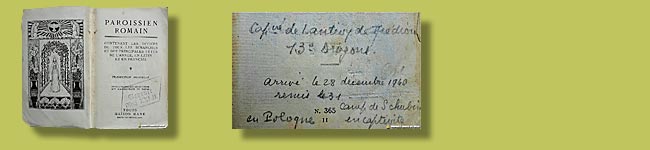 PAROISSIEN
ROMAIN
CONTENANT LES OFFICES
DE TOUS LES DIMANCHES
ET DES PRINCIPALES FÊTES
DE L'ANNÉE, EN LATIN
ET EN FRANÇAIS
TOURS
MAISON MAME
Cap^ne de Lantivy de Trédion
13e Dragons
arrivé le 28 décembre 1940
remis le 31
N. 365
camp de Schubin
en Pologne
11
en captivité